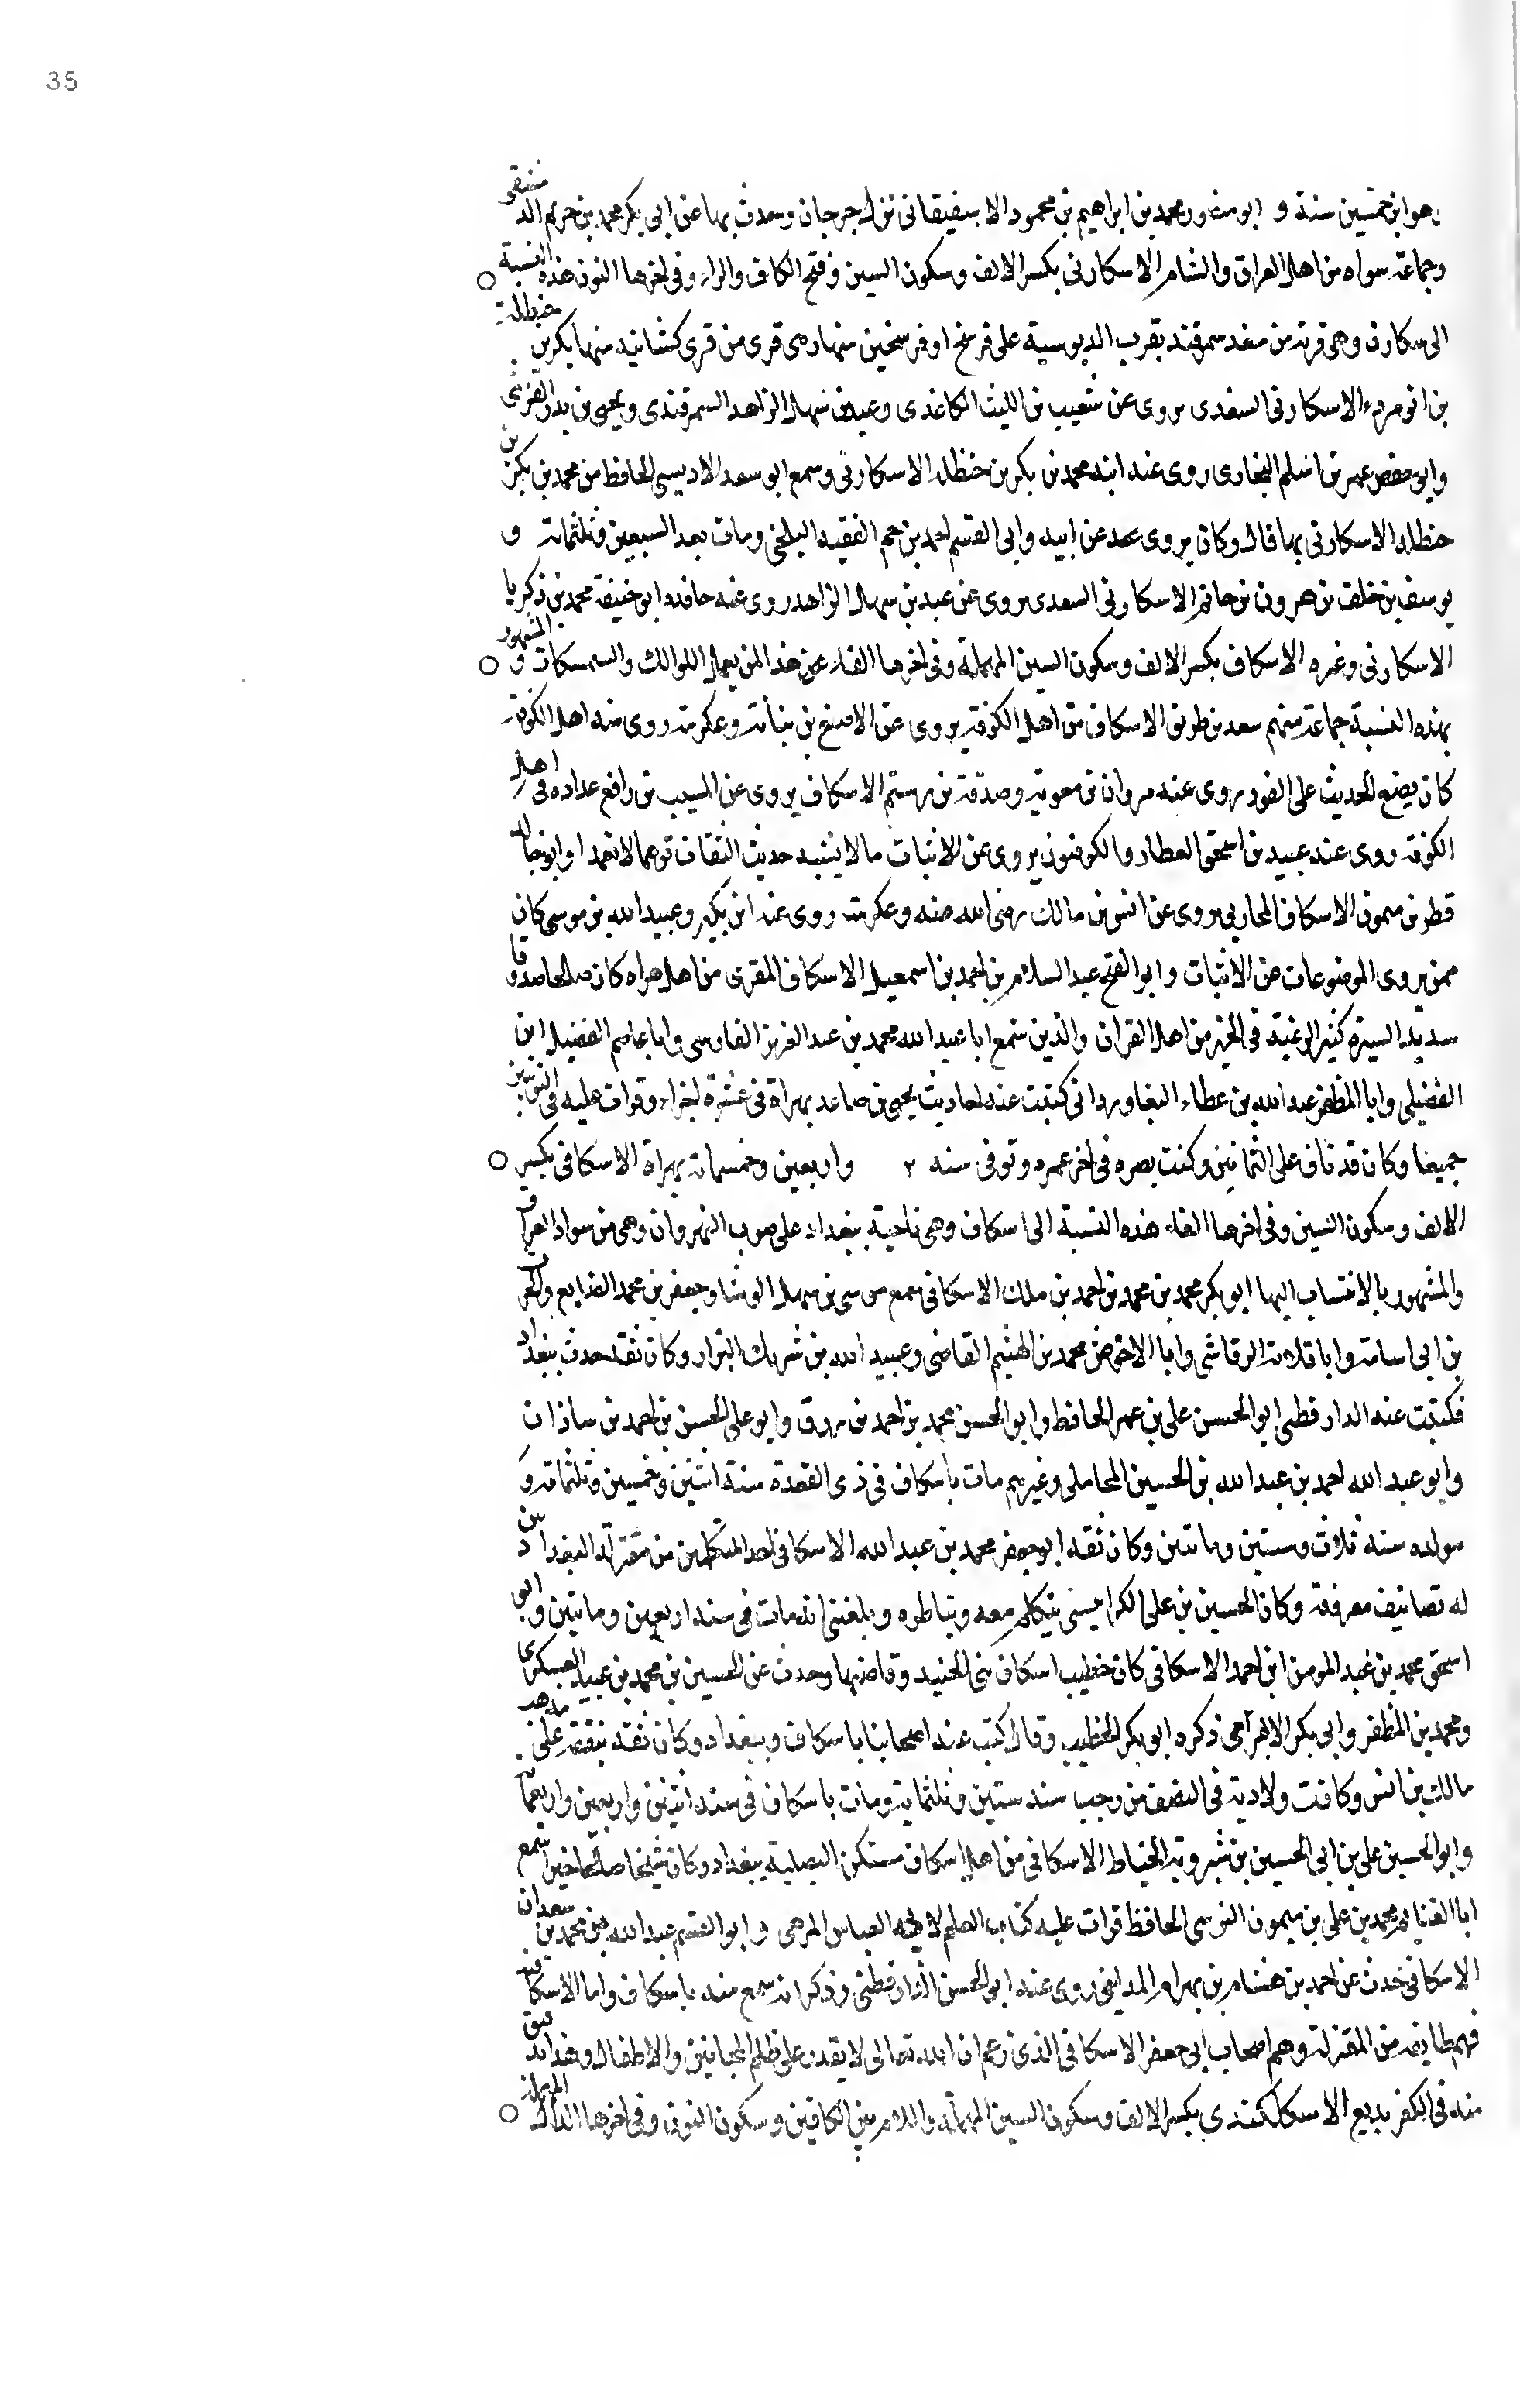 35
وهو ابن خمسين سنة و ابو منصور محمد بن ابراهيم بن محمود الاسفيقانى نزل جرجان وحدث بها عن ابى بكر محمد بن خريم الدمشقى
وجماعة سواه من اهل العراق والشام الاسكارنى بكسر الالف وسكون السين وفتح الكاف والراء وفى اخرها النون هذه النسبة
الى سكارن وهى قرية من سغد سمرقند بقرب الدبوسية على فرسخ او فرسخين منها وهى قرى من قرى كشانيه منها بكر بن حنظلة
بن انومرد الاسكارنى السغدى يروى عن شعيب بن الليث الكاغذى وعبد بن سهل الزاهد السمرقندى ويحيى بن بدر القرشى
وابى حفص عمر بن اسلم البخارى روى عنه ابنه محمد بن بكر بن حنظلة الاسكارنى وسمع ابو سعد الادريسى الحافظ من محمد بن بكر بن
حنظلة الاسكارنى بها قال وكان يروى محمد عن ابيه وابى القسم احمد بن حم الفقيه البلخى ومات بعد السبعين وثلثمائة و
يوسف بن خلف بن هرون بن حاتم الاسكارنى السعدى يروى عن عبد بن سهل الزاهد روى عنه حافده ابو حنيفة محمد بن زكريا
الاسكارنى وغيره الاسكاف بكسر الالف وسكون السين المهملة وفى اخرها الفاء هذا لمن يعمل اللوالك والشمسكات و المشهور
بهذه النسبة جماعة منهم سعد بن طريف الاسكاف من اهل الكوفة يروى عن الاصبغ بن نباتة وعكرمة روى عنه اهل الكوفة
كان يضع الحديث على الفور روى عنه مروان بن معوية وصدقة بن رستم الاسكاف يروى عن المسيب بن رافع عداده فى اهل
الكوفة روى عنه عبيد بن اسحق العطار والكوفيون يروى عن الاثبات ما لا يشبه حديث الثقات توهما لا تعمدا وابو خالد
قطر بن ميمون الاسكاف المحاربى يروى عن انس بن مالك رضى الله عنه وعكرمة روى عنه ابن بكير وعبيد الله بن موسى كان
ممن يروى الموضوعات عن الاثبات وابو الفتح عبد السلام بن احمد بن اسمعيل الاسكاف المقرى من اهل هراه كان صالحا صدوقا
سديد السيرة كثير الرغبة فى الخير من اهل القران والدين سمع ابا عبد الله محمد بن عبد العزيز الفارسى وابا عاصم الفضيل ابن
الفضيلى وابا المظفر عبد الله بن عطاء البغاوردانى كتبت عنه احاديث يحيى بن صاعد بهراة فى عشرة اجزاء وقرات عليه فى النوبتين
جميعا وكان قد ناف على الثمانين وكف بصره فى اخر عمره وتوفى سنه ٢ واربعين وخمسمائة بهراة الاسكافى بكسر
الالف وسكون السين وفى اخرها الفاء هذه النسبة الى اسكاف وهى ناحية ببغداد على صوب النهروان وهى من سواد العراق
والمشهور بالانتساب اليها ابو بكر محمد بن محمد بن احمد بن ملك الاسكافى سمع موسى بن سهل الوشا وجعفر بن محمد الصايغ والحرث
بن ابى اسامة وابا قلابة الرقاشى وابا الاحوص محمد بن الهيثم القاضى وعبيد الله بن شريك البزار وكان ثقة حدث ببغداد
فكتبت عنه الدارقطنى ابو الحسن على بن عمر الحافظ وابو الحسن محمد بن احمد بن رزق وابو على الحسن بن احمد بن شاذان
وابو عبد الله احمد بن عبد الله بن الحسين المحاملى وغيرهم مات باسكاف فى ذى القعدة سنة اثنين وخمسين وثلثمائة و
مولده سنة ثلاث وستين ومائتين وكان ثقه ابو جعفر محمد بن عبد الله الاسكافى احد المتكلمين من معتزلة البغداديين
له تصانيف معرفة وكان الحسين بن على الكرابيسى يتكلم معه ويناظره وبلغنى انه مات فى سنه اربعين ومايتين وابو
اسحق محمد بن عبد المومن ابن احمد الاسكافى كان خطيب اسكاف بنى الجنيد وقاضيها وحدث عن الحسين بن محمد بن عبيد العسكرى
ومحمد بن المظفر وابى بكر الابهرى ذكره ابو بكر الخطيب وقال كتب عنه اصحابنا باسكاف وببغداد وكان ثقة يتفقه على مذهب
مالك بن انس وكانت ولادته فى النصف من رجب سنه ستين وثلثماية ومات باسكاف فى سنه اثنين واربعين واربعمائة
وابو الحسين على بن ابى الحسين بن شيرويه الخياط الاسكافى من اهل اسكاف سكن البصلية ببغداد وكان شيخا صالحا خيرا سمع
ابا الغنايم محمد بن على بن ميمون النرسى الحافظ قرات عليه كتاب العلم لابى العباس المرهبى وابو القسم عبد الله بن محمد بن سعدان
الاسكافى حدث عن احمد بن هشام بن بهرام المداينى روى عنه ابو الحسن الدارقطنى وذكر انه سمع منه باسكاف واما الاسكافيه
فهم طايفه من المعتزلة وهم اصحاب ابى جعفر الاسكافى الذى زعم ان الله تعالى لا يقدر على ظلم المجانين والاطفال وهذا
منه فى الكفر بديع الاسكلكندى بكسر الالف وسكون السين المهملة واللام بين الكافين وسكون النون وفى اخرها الدال المهملة